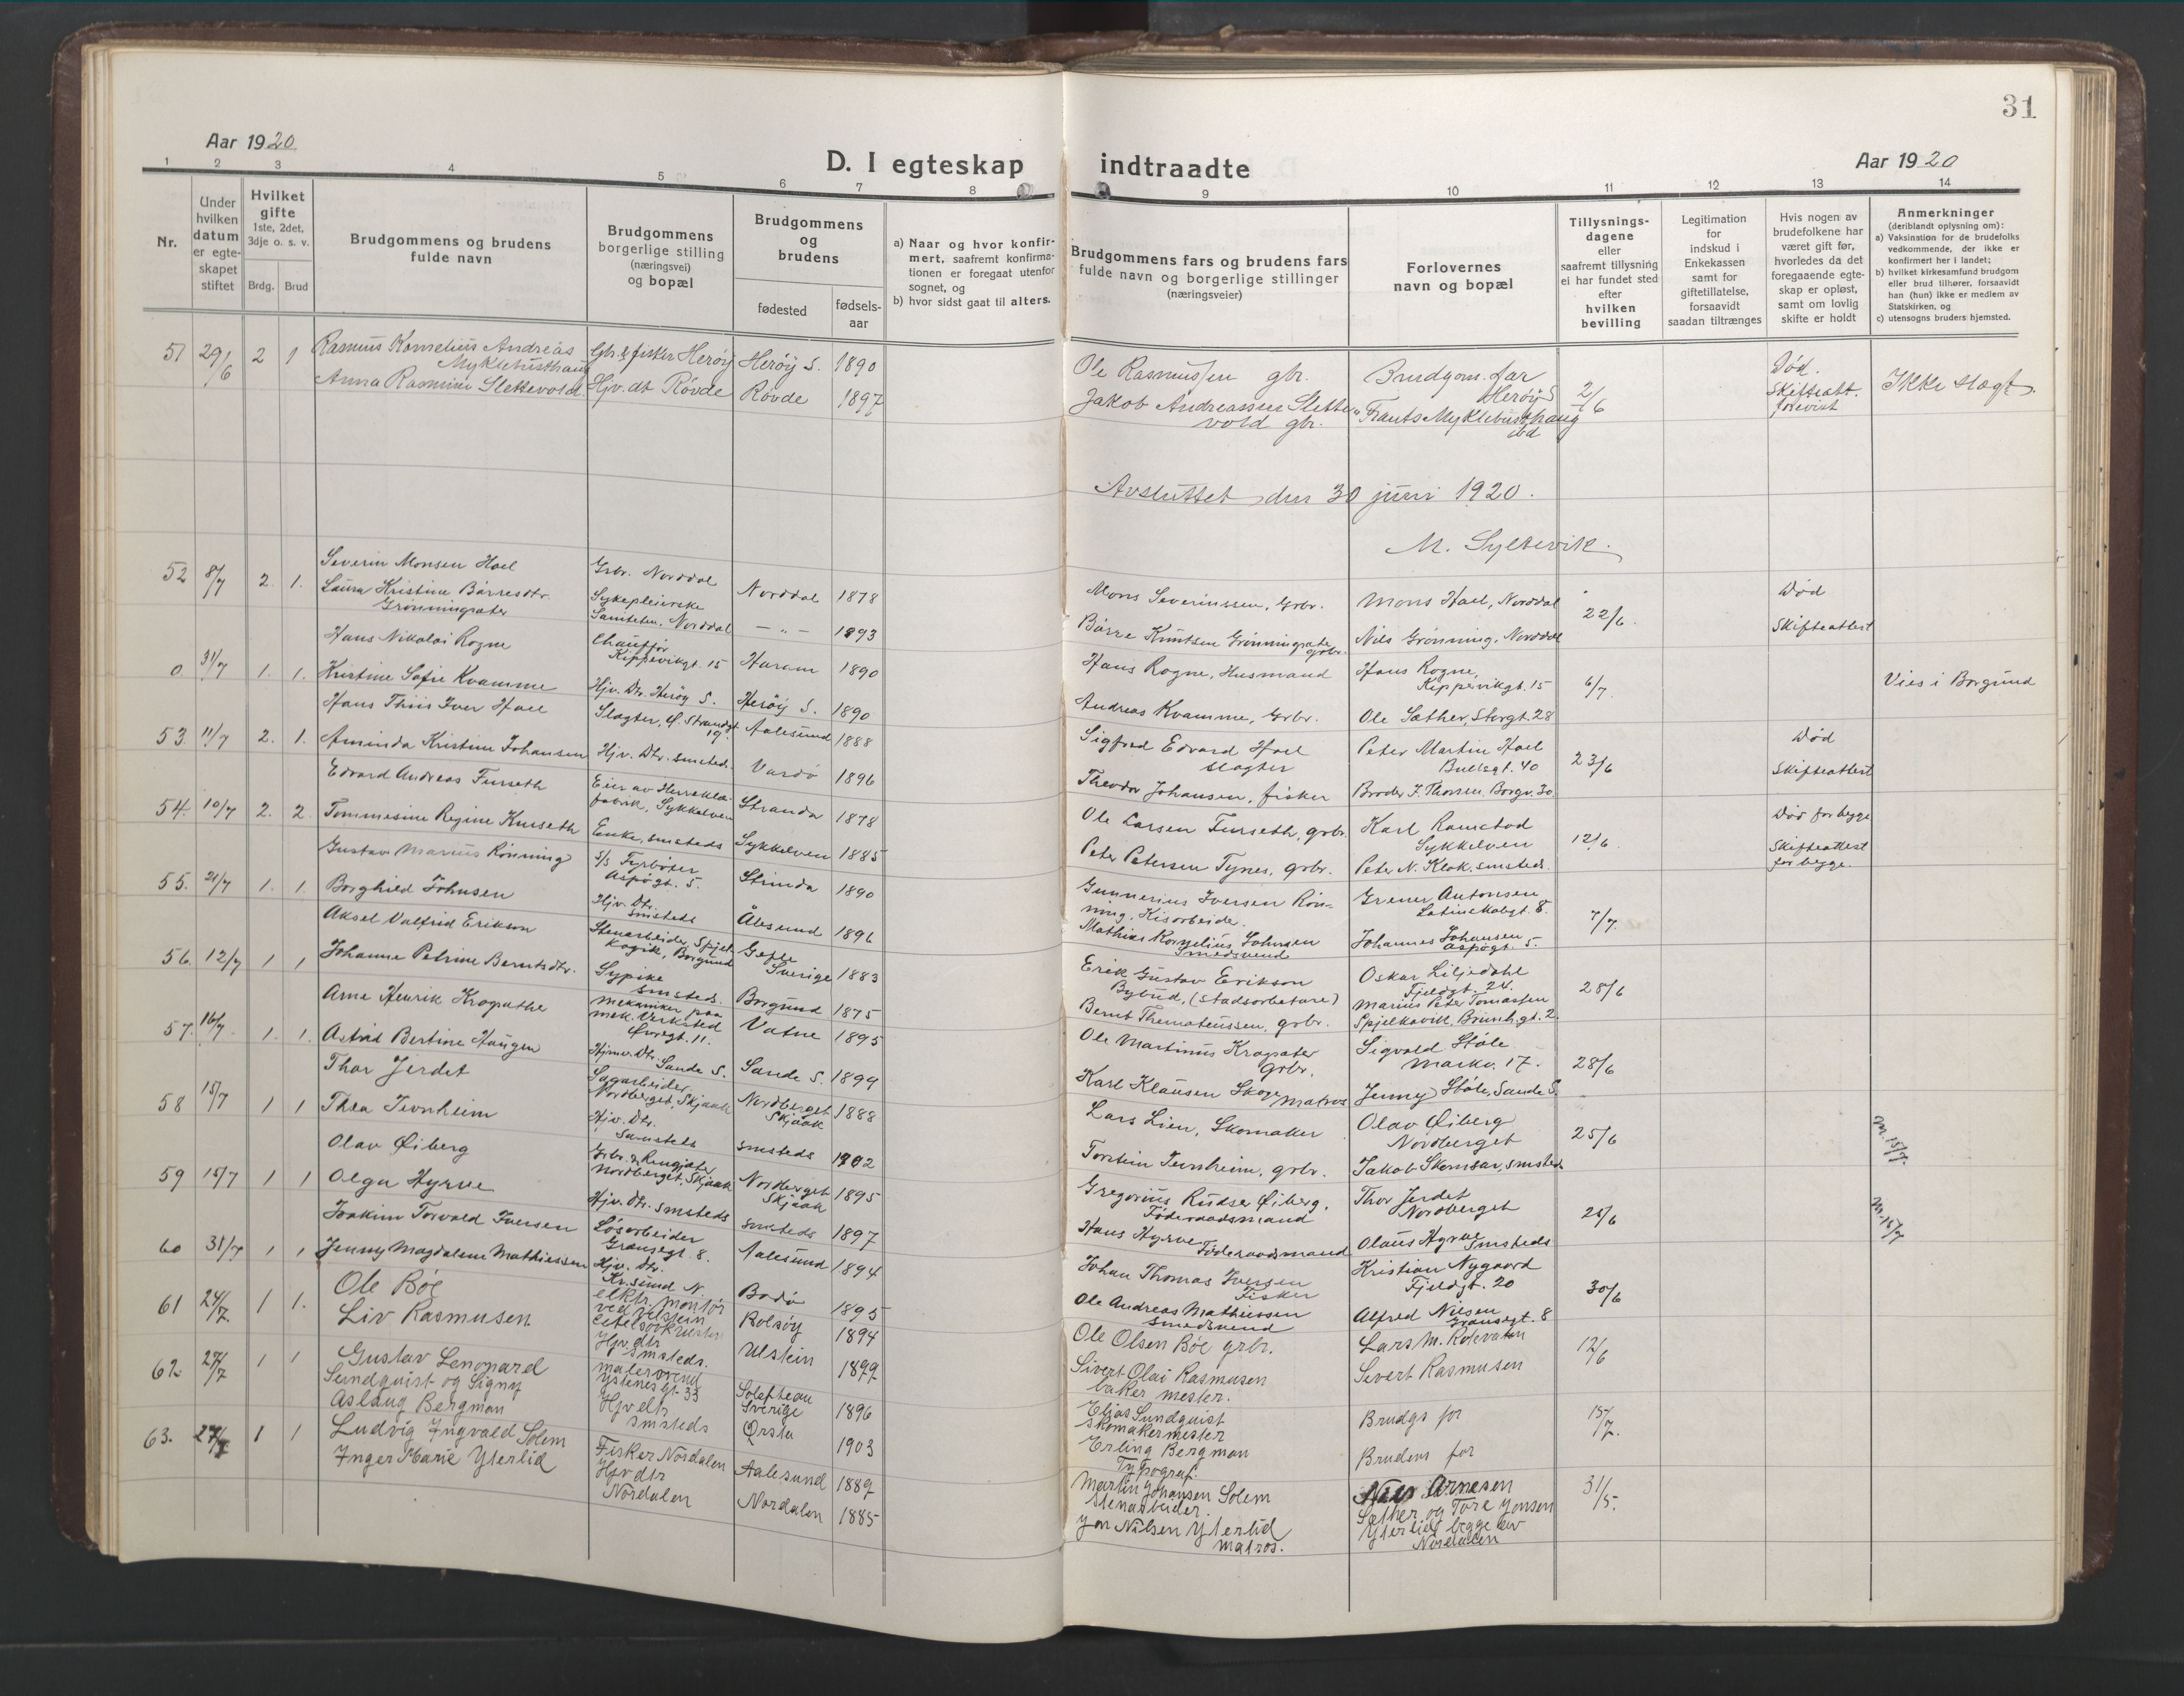 31
Aar 1920
D. I egteskap indtraadte
Aar 1920
1 2 3 4 5 6 7 8 9 10 11 12 13 14
Nr.
Under hvilken datum er egte-skapet stiftet
Hvilket gifte 1ste, 2det, 3dje o. s. v.
Brdg. Brud
Brudgommens og brudens fulde navn
Brudgommens borgerlige stilling (næringsvei) og bopæl
Brudgommens og brudens
fødested
fødsels-aar
a) Naar og hvor konfir-mert, saafremt konfirma-tionen er foregaat utenfor sognet, og
b) hvor sidst gaat til alters.
Brudgommens fars og brudens fars fulde navn og borgerlige stillinger (næringsveier)
Forlovernes navn og bopæl
Tillysnings-dagene eller saafremt tillysning ei har fundet sted efter hvilken bevilling
Legitimation for indskud i Enkekassen samt for giftetillatelse, forsaavidt saadan tiltrænges
Hvis nogen av brudefolkene har været gift før, hvorledes da det foregaaende egte-skap er opløst, samt om lovlig skifte er holdt
Anmerkninger (deriblandt oplysning om):
a) Vaksination for de brudefolks vedkommende, der ikke er konfirmert her i landet;
b) hvilket kirkesamfund brudgom eller brud tilhører, forsaavidt han (hun) ikke er medlem av Statskirken, og
c) utensogns bruders hjemsted.
51 29/6 2 1 Rasmus Kornelius Andreas Myklebusthaug Gbr. & fisker Herøy Herøy S. 1890 Ole Rasmussen gbr. Brudgom. far Herøy S 2/6 Død. Skifteatt. forevist Ikke slegt.
Anna Rasmine Slettevold Hjv. dt Røvde Røvde 1897 Jakob Andreassen Slettevold gbr. Frants Myklebusthaug ibd
Avsluttet den 30 juni 1920.
M. Syltevik.
52 8/7 2. 1. Severin Monsen Hoel Grbr. Norddal Norddal 1878 Mons Severinssen, Grbr. Mons Hoel, Norddal 22/6. Død Skifteattest
Laura Kristine Bårresdtr. Grønningsæter Sykepleierske Samsteten, Norddal — „ — 1893 Bårre Knutsen Grønningsæter grbr. Nils Grønning. Norddal
0. 31/7 1. 1. Hans Nikolai Rogne Chauffør Kippervikgt. 15 Haram 1890 Hans Rogne, Husmand Hans Rogne, Kippervikgt. 15 6/7. Vies i Borgund
Kristine Sofie Kvamme Hjv. Dtr. Herøy S. Herøy S. 1890 Andreas Kvamme, Grbr. Ole Sæther, Storgt. 28
53. 11/7 2. 1. Hans Thiis Iver Hoel Slagter, Ø. Strandgt 19. Aalesund 1888 Sigfred Edvard Hoel slagter Peter Martin Hoel Bullsgt. 40 23/6 Død Skifteattest
Aminda Kristine Johansen Hjv. Dtr. smsteds. Vardø 1896 Theodor Johansen, fisker Broder J. Thorsen. Borgv. 30
54. 10/7 2. 2. Edvard Andreas Furseth Eier av Herreklæ-fabrik, Sykkelven Stranda 1878 Ole Larsen Furseth, grbr. Karl Ramstad Sykkelven 12/6. Død for begge Skifteattest for begge.
Tommesine Regine Kurseth Enke, smsteds Sykkelven 1885 Peter Petersen Tynes, grbr. Peter N. Klok, smsteds.
55. 21/7 1. 1. Gustav Marius Rönning S/S Fyrbøter Aspøgt. 5. Strinda 1890 Gunnerius Iversen Rön-ning. Kisarbeider. Grener Antonsen Latinskolegt. 8. 7/7.
Borghild Johnsen Hjv. Dtr. smsteds Ålesund 1896 Mathias Kornelius Johnsen Smedsvend Johannes Johansen Aspøgt. 5.
56. 12/7 1 1 Aksel Valfrid Erikson Stenarbeider, Spjel-kavik, Borgund Gefle Sverige 1883 Erik Gustav Erikson Bybud, (Stadsarbetare) Oskar Liljedahl Fjeldgt. 24. 28/6
Johanne Petrine Berntsdtr. Sypike smsteds. Borgund 1875 Bernt Themateussen, grbr. Marius Peter Tomassen Spjelkavik, Brunh.gt. 2.
57. 16/7 1. 1. Arne Henrik Kragsæthe Mekaniker paa mek. Verksted Øvregt. 11. Vatne 1895 Ole Martinus Kragsæter grbr. Sigvald Støle Markv. 17. 28/6
Astrid Bertine Haugen Hjmv. Dtr. Sande S. Sande S. 1899 Karl Klausen Skoge Matros Jenny Støle, Sande S.
58 15/7 1 1 Thor Jerdet Sagarbeider Nordberget, Skjaak Nordberget Skjaak 1888 Lars Lien, Skomaker Olav Øiberg Nordberget 25/6 M. 15/7.
Thea Ternheim Hjv. Dtr. Samsteds smsteds 1902 Torstein Ternheim, grbr. Jakob Skamsar, smsteds
59 15/7 1 1 Olav Øiberg Grbr. Nordberget, Skjaak Nordberget Skjaak 1895 Gregorius Rudse Øiberg. Føderaadsmand Thor Jerdet Nordberget 25/6 M. 15/7
Olga Hyrve Hjv. Dtr. smsteds smsteds 1897 Hans Hyrve Føderaadsmand Olaus Hyrve smsteds
60 31/7 1 1 Joakim Torvald Iversen Løsarbeider Grensegt. 8. Aalesund 1894 Johan Thomas Iversen Fisker Kristian Nygaard Fjeldgt. 20 30/6
Jenny Magdalene Mathiessen Hjv. Dtr. Kr.sund N. Bodø 1895 Ole Andreas Mathiessen smedsvend Alfred Nilsen Grensegt. 8
61 24/7 1 1. Ole Bøe elktr. montør ved Ulstein Rolsøy 1894 Ole Olsen Bøe grbr. Lars M. 12/6
Liv Rasmusen. Hjv. dtr smsteds. Ulstein 1899 Sivert Olai Rasmusen baker mester. Severt Rasmusen
62. 27/7 1 1 Gustav Lenopard Sundquist og Signy malersvend Ystenesgt 33 Solefteau Sverige 1896 Elias Sundquist skomakermester Brudgs for 15/7.
Aslaug Bergman Hjvdtr smsteds Ørsta 1903 Erling Bergman Typograf. Brudens for
63. 27/7 1 1 Ludvig Ingvald Solem Fisker Nordalen Aalesund 1889 Martin Johansen Solem stenarbeider. Nils Arnesen Sæther og Tore Jonsen 31/5.
Inger Marie Yterlid Hjvdtr Nordalen Nordalen 1885 Jon Nilsen Yterlid matros. Yterlid begge av Nordalen